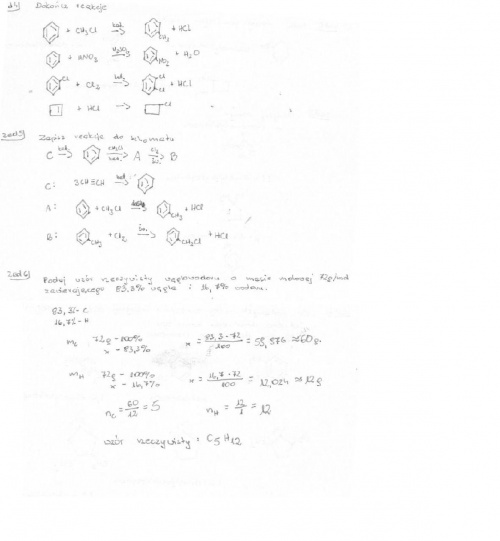 Dokończ reakcje
+ CH3Cl kat. → CH3 + HCl
+ HNO3 H2SO4 → NO2 + H2O
Cl + Cl2 kat. → Cl Cl + HCl
+ HCl → Cl
zad 5) Zapisz reakcje do schematu
C kat. → CH3Cl kat. → A Cl2 św. → B
C: 3CH≡CH kat. →
A: + CH3Cl → CH3 + HCl
B: CH3 + Cl2 św. → CH2Cl + HCl
zad 6) Podaj wzór rzeczywisty węglowodoru o masie molowej 72g/mol
zawierającego 83,3% węgla i 16,7% wodoru.
83,3% - C
16,7% - H
mC 72g - 100% x = 83,3 · 72 / 100 = 59,976 ≈ 60g
x - 83,3%
mH 72g - 100% x = 16,7 · 72 / 100 = 12,024 ≈ 12g
x - 16,7%
nC = 60/12 = 5 nH = 12/1 = 12
wzór rzeczywisty: C5H12